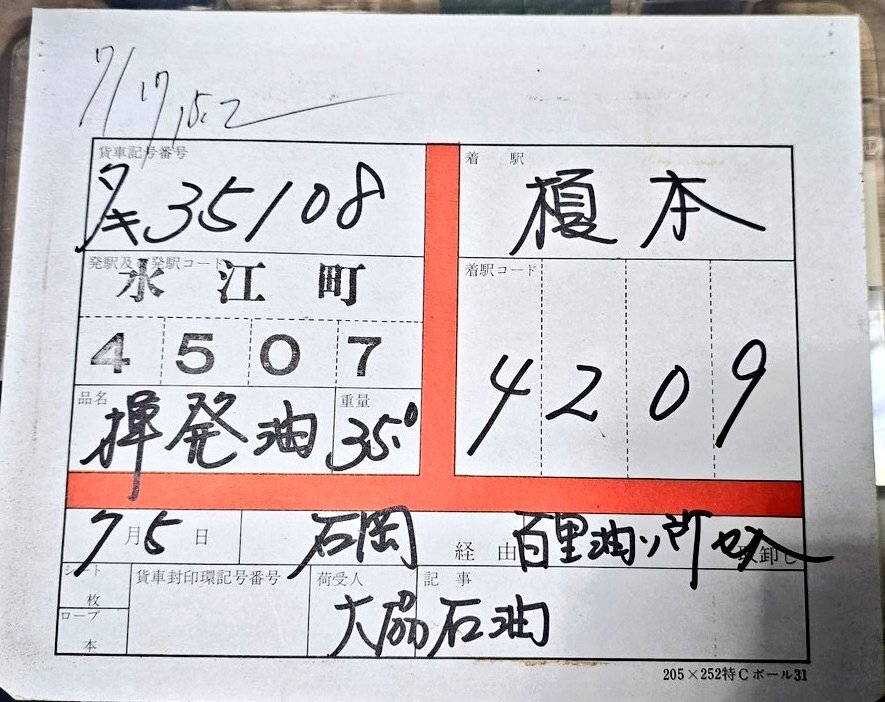 7/17, 15.2
貨車記号番号
タキ35108
着 駅
榎本
発駅及び発駅コード
水江町
着駅コード
4507
4209
品名
揮発油
重量
35.0
7月5日
石岡 経由 百里油 取卸し
シート
枚
ロープ
本
貨車封印環記号番号
荷受人
記事
大協石油
205×252特Cボール31